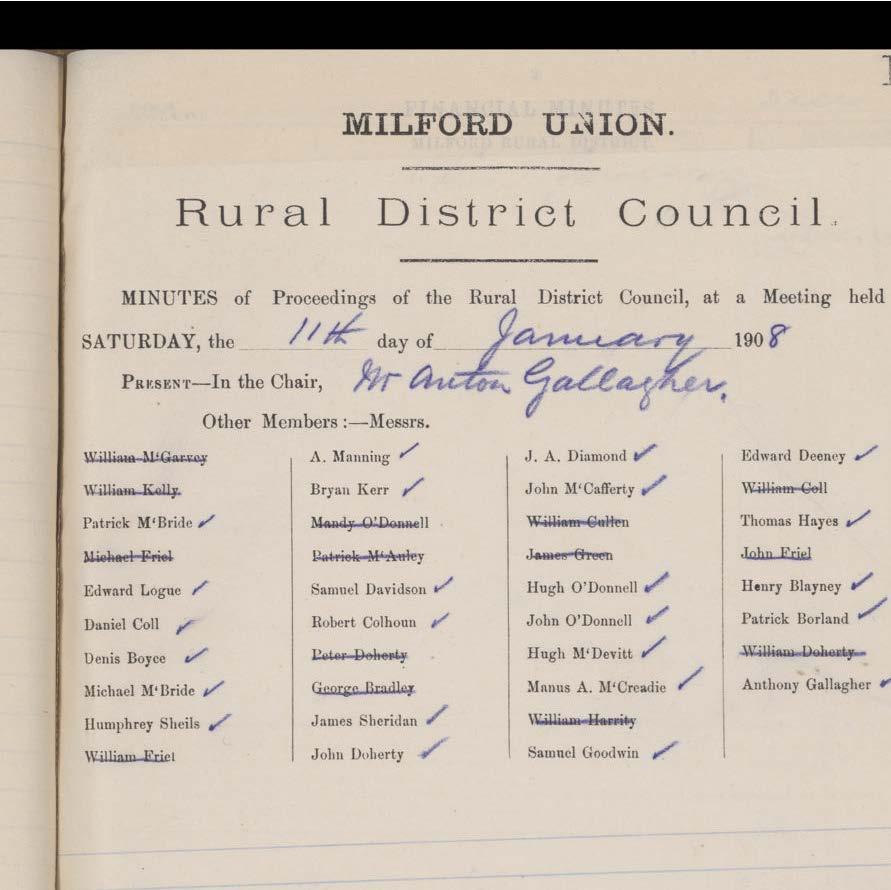 MILFORD UNION.
Rural District Council.
MINUTES of Proceedings of the Rural District Council, at a Meeting held
SATURDAY, the 11th day of January 1908
PRESENT—In the Chair, Mr Anton Gallagher.
Other Members :—Messrs.
William M‘Garvey
William Kelly.
Patrick M‘Bride ✓
Michael Friel
Edward Logue ✓
Daniel Coll ✓
Denis Boyce ✓
Michael M‘Bride ✓
Humphrey Sheils ✓
William Friel
A. Manning ✓
Bryan Kerr ✓
Mandy O’Donnell
Patrick M‘Auley
Samuel Davidson ✓
Robert Colhoun ✓
Peter Doherty
George Bradley
James Sheridan ✓
John Doherty ✓
J. A. Diamond ✓
John M‘Cafferty ✓
William Cullen
James Green
Hugh O’Donnell ✓
John O’Donnell ✓
Hugh M‘Devitt ✓
Manus A. M‘Creadie ✓
William Harrity
Samuel Goodwin ✓
Edward Deeney ✓
William Coll
Thomas Hayes ✓
John Friel
Henry Blayney ✓
Patrick Borland ✓
William Doherty
Anthony Gallagher ✓